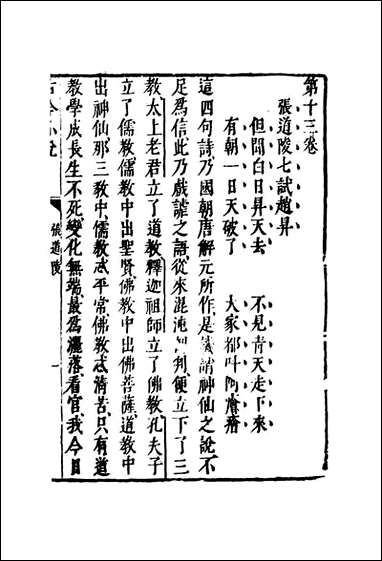 第十三卷
張道陵七試趙昇
但聞白日昇天去 不見青天走下來
有朝一日天破了 大家都叫阿癐癐
這四句詩乃國朝唐解元所作是譏誚神仙之說不
足為信此乃戲謔之語從來混沌判便立下了三
教太上老君立了道教釋迦祖師立了佛教孔夫子
立了儒教儒教中出聖賢佛教中出佛菩薩道教中
出神仙那三教中儒教忒平常佛教忒清苦只有道
教學成長生不死變化無端最為灑落看官我今日
古今小說
張道陵
一